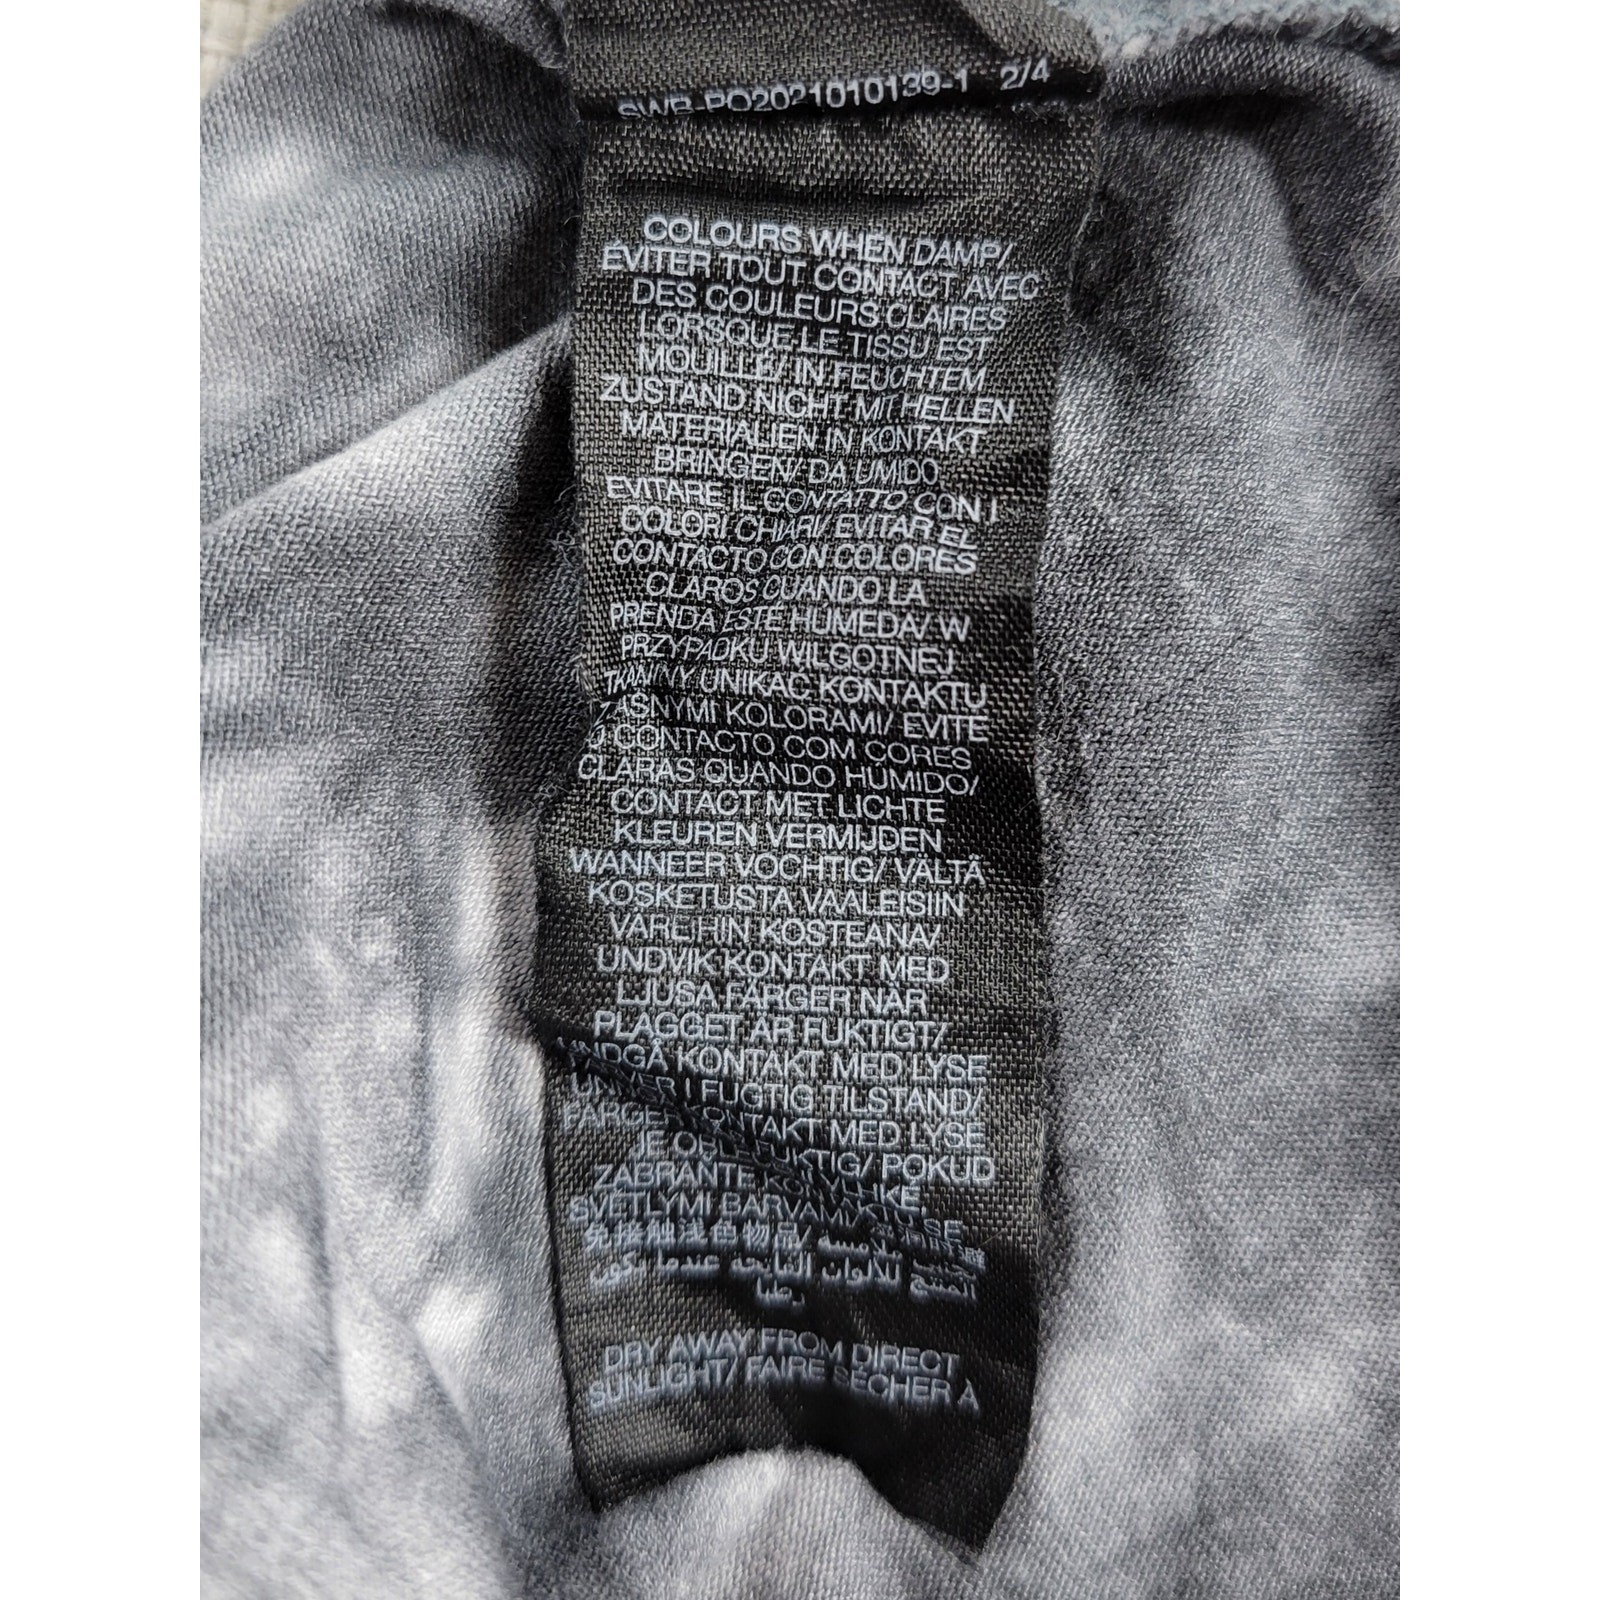 SWB-PO2021010139-1 2/4
COLOURS WHEN DAMP/
ÉVITER TOUT CONTACT AVEC
DES COULEURS CLAIRES
LORSQUE LE TISSU EST
MOUILLÉ/ IN FEUCHTEM
ZUSTAND NICHT MIT HELLEN
MATERIALIEN IN KONTAKT
BRINGEN/ DA UMIDO
EVITARE IL CONTATTO CON I
COLORI CHIARI/ EVITAR EL
CONTACTO CON COLORES
CLAROS CUANDO LA
PRENDA ESTE HUMEDA/ W
PRZYPADKU WILGOTNEJ
TKANINY UNIKAC KONTAKTU
ZASNYMI KOLORAMI/ EVITE
O CONTACTO COM CORES
CLARAS QUANDO HUMIDO/
CONTACT MET LICHTE
KLEUREN VERMIJDEN
WANNEER VOCHTIG/ VÄLTÄ
KOSKETUSTA VAALEISIIN
VÄREIHIN KOSTEANA/
UNDVIK KONTAKT MED
LJUSA FÄRGER NÄR
PLAGGET ÄR FUKTIGT/
UNDGÅ KONTAKT MED LYSE
I FUGTIG TILSTAND/
KONTAKT MED LYSE
POKUD
ZABRANTE
SVETLYMI BARVAMI/
浅色物品/ ملامسة
المنتج للألوان الفاتحة عندما يكون
رطبا
DRY AWAY FROM DIRECT
SUNLIGHT/ FAIRE SÉCHER A